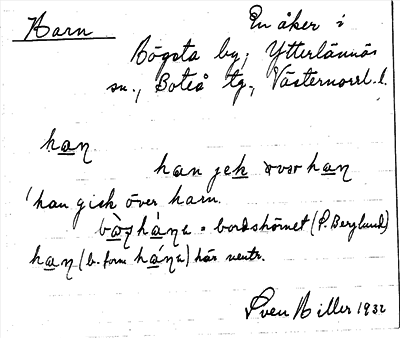 Harn En åker i
Bögsta by, Ytterlännäs
sn., Boteå tg., Västernorrl. l.
han
han jek över han
'han gick över harn.
bòṣhána = bordshörnet (P. Berglund)
han (b. form hána) här neutr.
Sven Hiller 1932